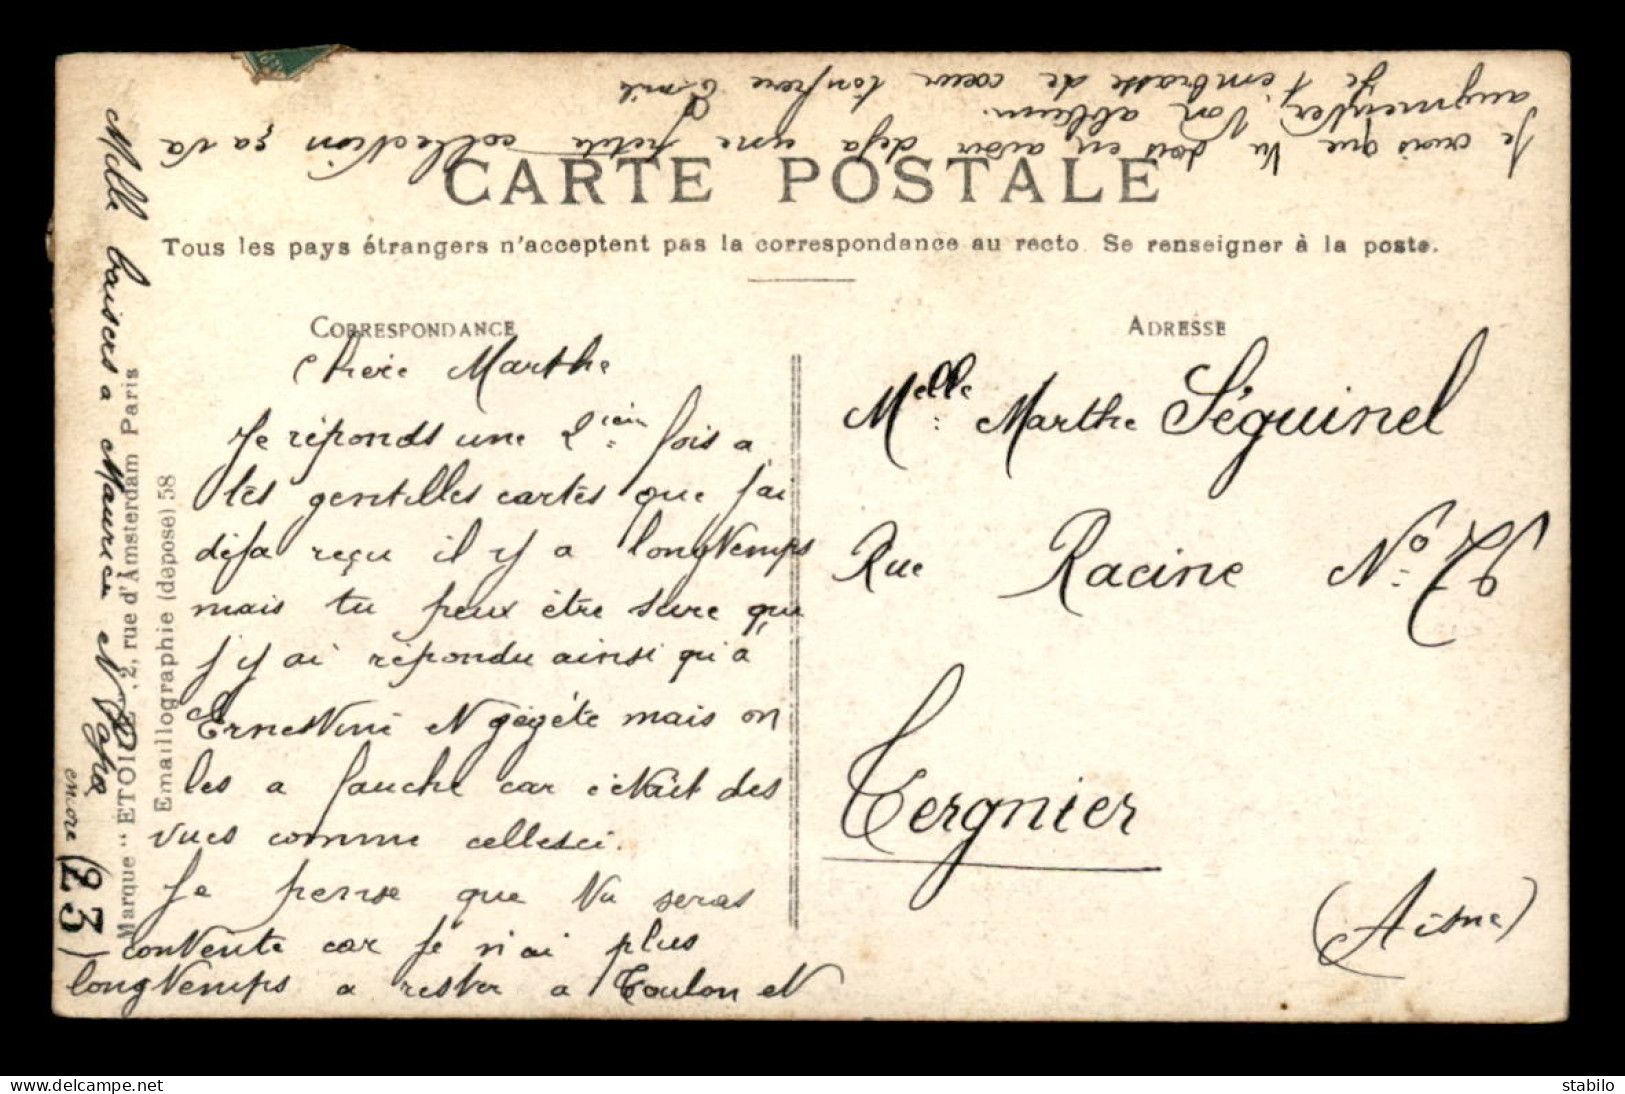 CARTE POSTALE
Tous les pays étrangers n'acceptent pas la correspondance au recto. Se renseigner à la poste.
CORRESPONDANCE
Chere Marthe
Je réponds une 2iem fois a
tes gentilles cartes que j'ai
déja reçu il y a longtemps
mais tu peux être sure que
j'y ai répondu ainsi qu'a
Ernestine et gégéte mais on
les a fauche car c'etait des
vues comme cellesci.
Je pense que tu seras
contente car je n'ai plus
longtemps a rester a Toulon et
Je crois que tu dois en avoir deja une petite collection ça va
augmenter ton album.
Je t'embrasse de cœur ton frere Emile
Mille baisers a Maurice et
encore (23)
Marque "ETOILE", 2, rue d'Amsterdam Paris
Emaillographie (déposé) 58
ADRESSE
Melle Marthe Séguinel
Rue Racine No 76
Tergnier
(Aisne)
stabilo